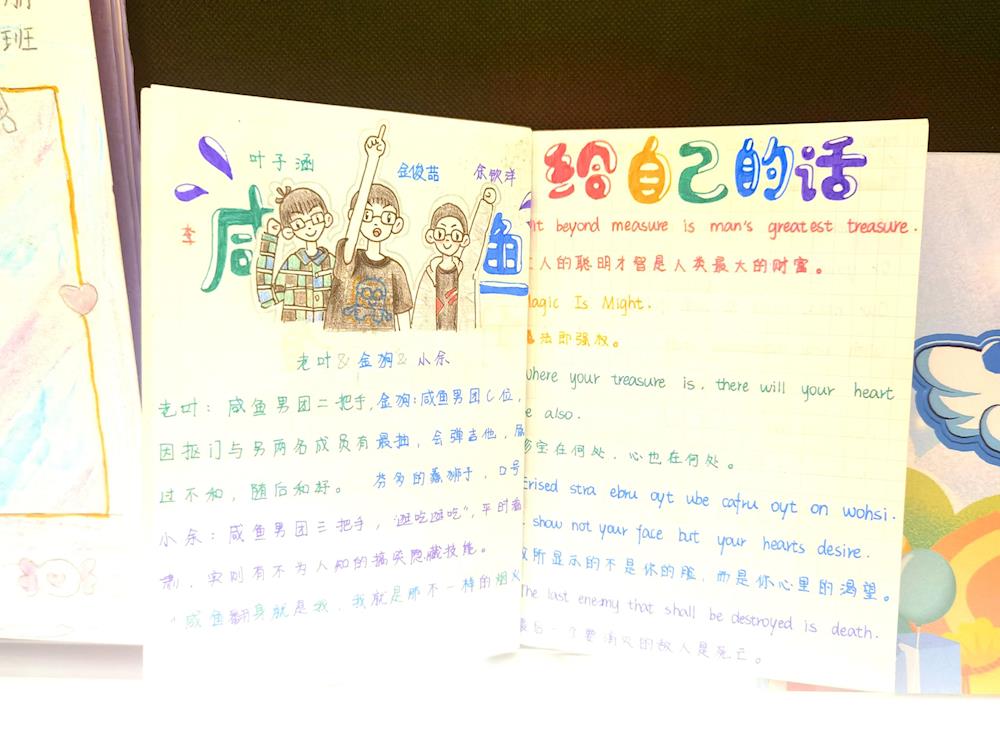 班
叶子涵
金俊喆
余歆洋
李
咸
鱼
老叶&金狗&小余
老叶：咸鱼男团二把手，
因抠门与另两名成员有
过不和，随后和好。
金狗：咸鱼男团C位，
最抽，会弹吉他，
芬多的
狮子，口号
“逃吃逃吃”，
小余：咸鱼男团三把手，平时看
实则有不为人知的搞笑隐藏技能。
“咸鱼翻身就是我，我就是那不一样的烟火
给自己的话
beyond measure is man's greatest treasure.
人的聪明才智是人类最大的财富。
Magic Is Might.
法即强权。
where your treasure is, there will your heart
also.
宝在何处，心也在何处。
Erised stra ehru oyt ube cafru oyt on wohsi.
show not your face but your hearts desire.
所显示的不是你的脸，而是你心里的渴望。
The last enemy that shall be destroyed is death.
最后一个要消灭的敌人是死亡。